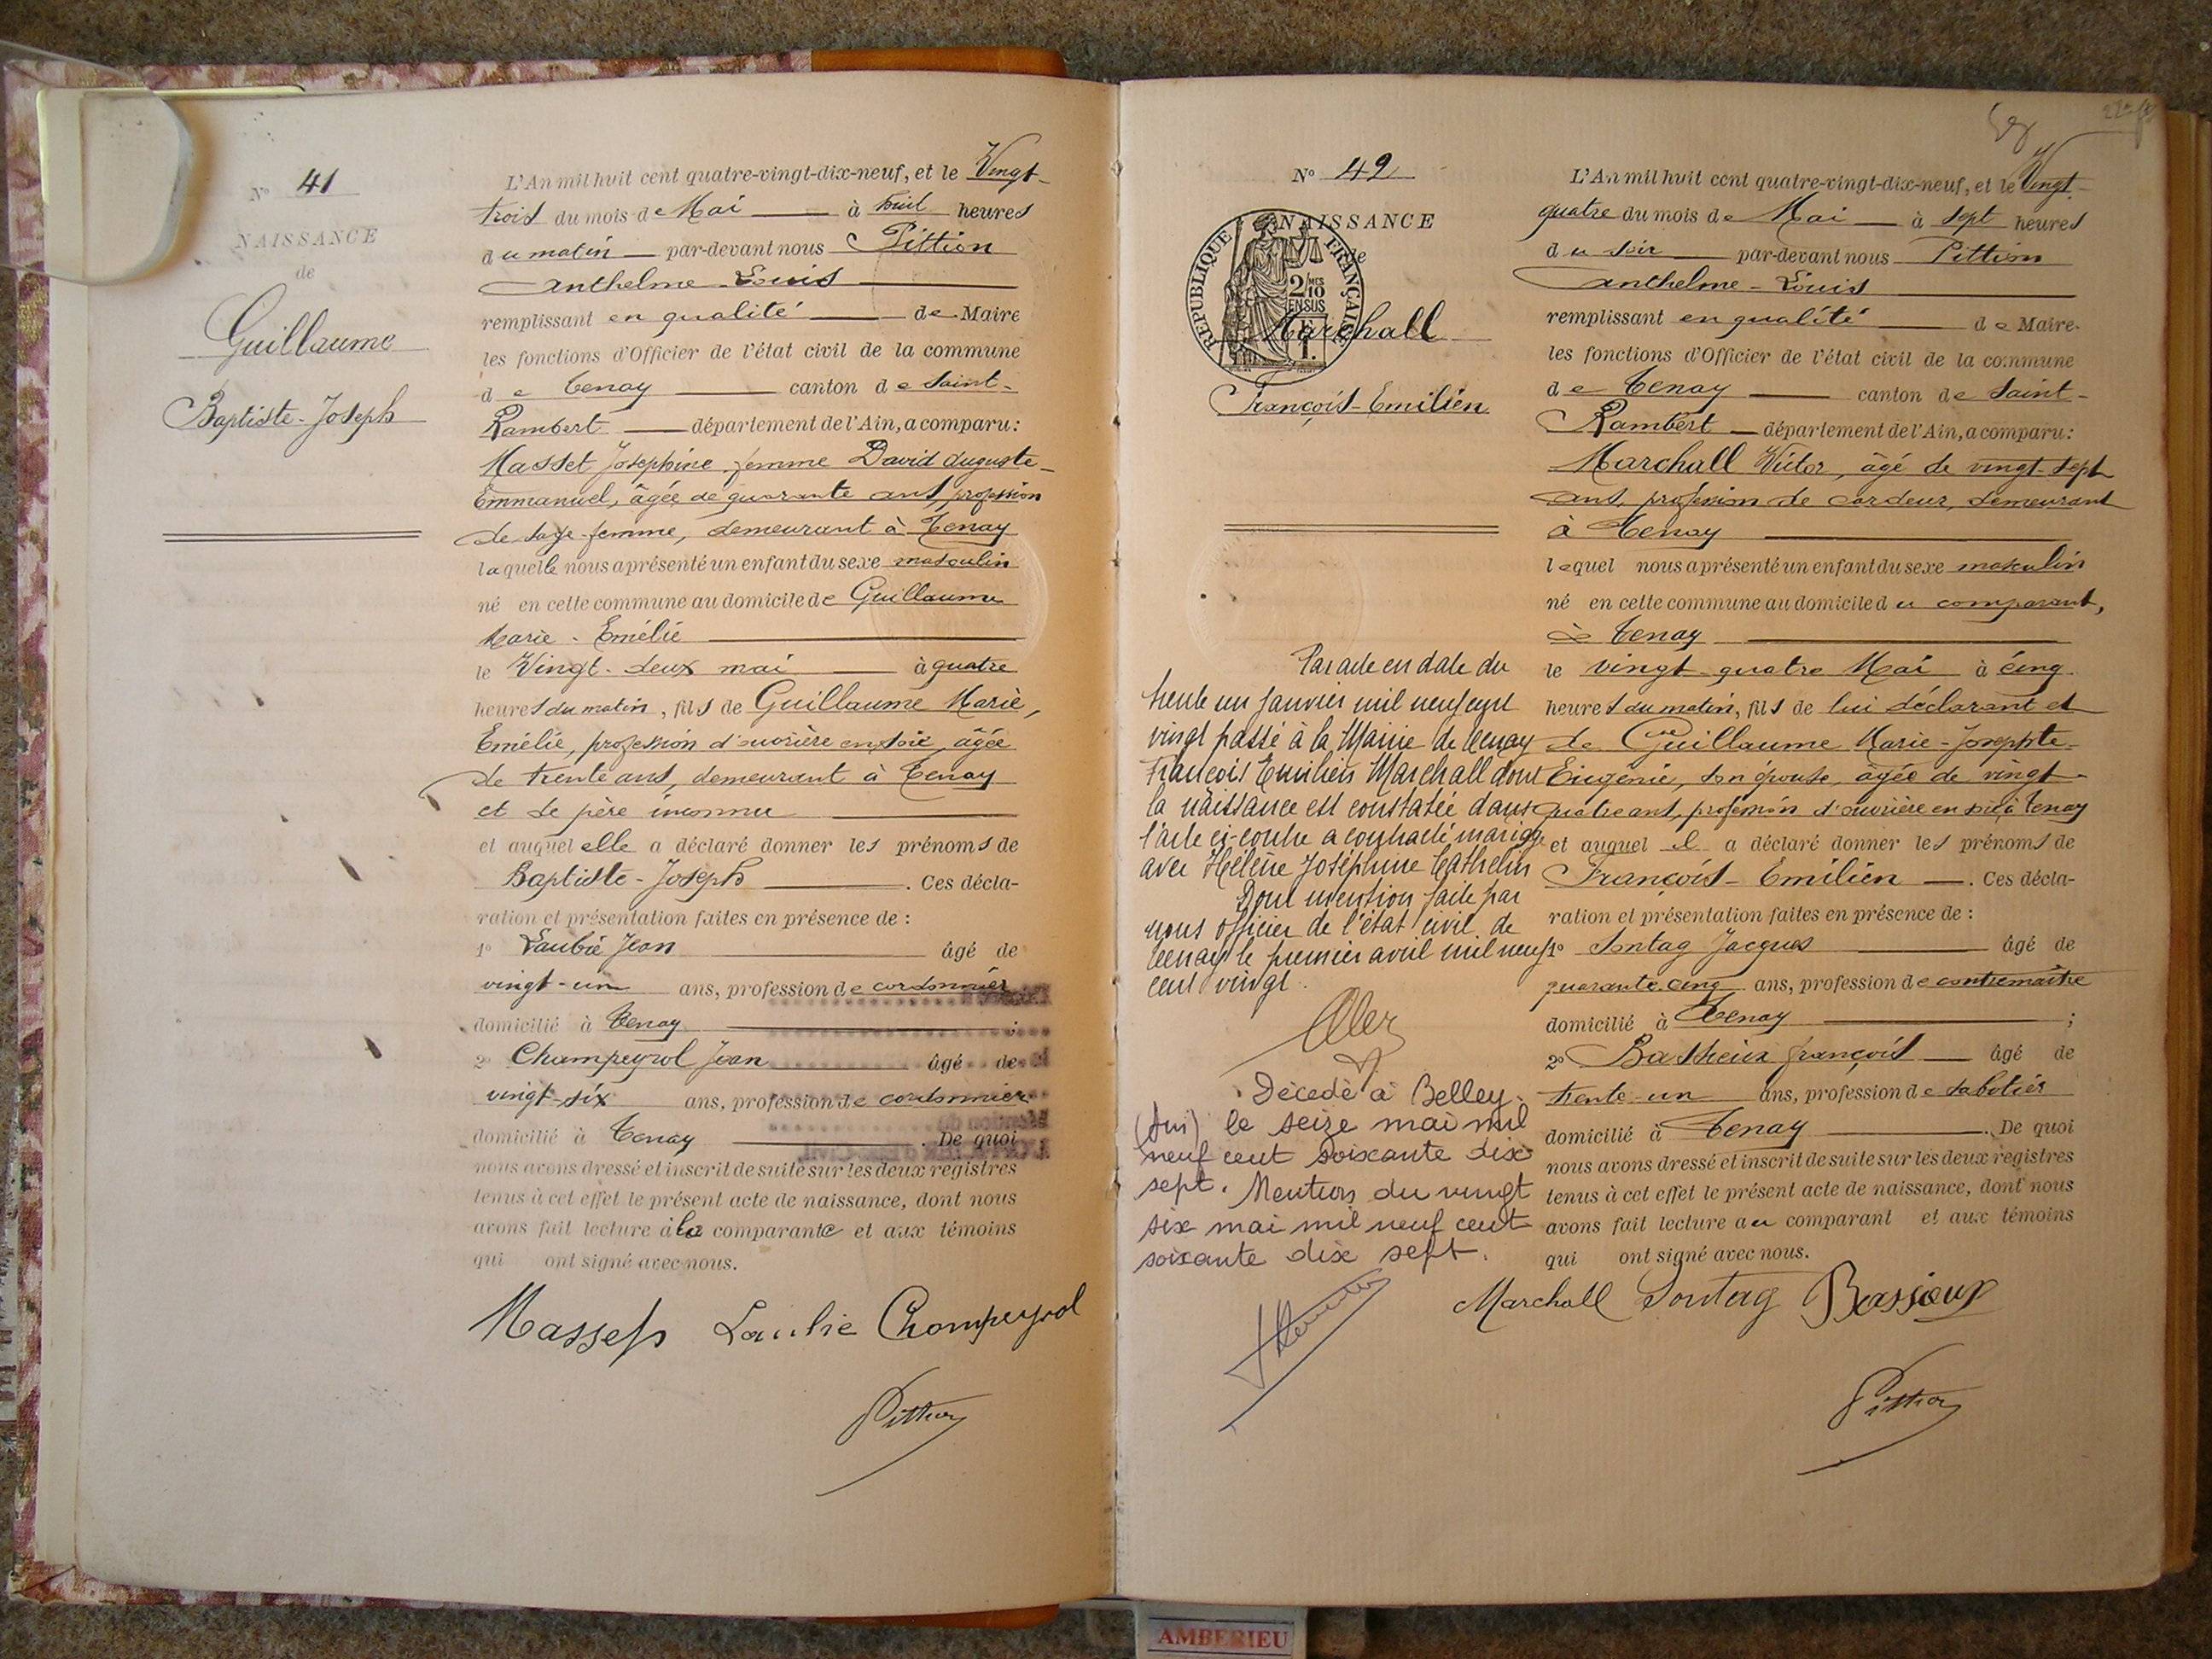 N° 41
NAISSANCE
de
Guillaume
Baptiste-Joseph
L'An mil huit cent quatre-vingt-dix-neuf, et le Vingt-
trois du mois de Mai à huit heures
du matin par-devant nous Pittion
Anthelme Louis
remplissant en qualité de Maire
les fonctions d'Officier de l'état civil de la commune
de Tenay canton de Saint-
Rambert département de l'Ain, a comparu :
Masset Joséphine femme David Auguste-
Emmanuel, âgée de quarante ans, profession
de sage-femme, demeurant à Tenay
laquelle nous a présenté un enfant du sexe masculin
né en cette commune au domicile de Guillaume
Marie-Emélie
le Vingt-deux mai à quatre
heures du matin, fils de Guillaume Marie,
Emélie, profession d'ouvrière en soie, âgée
de trente ans, demeurant à Tenay
et de père inconnu
et auquel elle a déclaré donner les prénoms de
Baptiste-Joseph. Ces décla-
ration et présentation faites en présence de :
1° Laubie Jean âgé de
vingt-un ans, profession de cordonnier
domicilié à Tenay ;
2° Champeyrol Jean âgé de
vingt-six ans, profession de cordonnier
domicilié à Tenay. De quoi
nous avons dressé et inscrit de suite sur les deux registres
tenus à cet effet le présent acte de naissance, dont nous
avons fait lecture à la comparante et aux témoins
qui ont signé avec nous.
Laubie Champeyrol
Pittion
N° 42
NAISSANCE
de
RÉPUBLIQUE FRANÇAISE
2/10 MES
EN SUS
Marchall
François-Emilien
Par acte en date du
trente un janvier mil neuf cent
vingt passé à la Mairie de Tenay
François Emilien Marchall dont
la naissance est constatée dans
l'acte ci-contre a contracté mariage
avec Hélène Joséphine Cathelin
Dont mention faite par
nous officier de l'état civil de
Tenay le premier avril mil neuf
cent vingt.
Décédé à Belley
(Ain) le seize mai mil
neuf cent soixante dix
sept. Mention du vingt
six mai mil neuf cent
soixante dix sept.
L'An mil huit cent quatre-vingt-dix-neuf, et le Vingt-
quatre du mois de Mai à sept heures
du soir par-devant nous Pittion
Anthelme-Louis
remplissant en qualité de Maire
les fonctions d'Officier de l'état civil de la commune
de Tenay canton de Saint-
Rambert département de l'Ain, a comparu :
Marchall Victor, âgé de vingt-sept
ans, profession de cardeur, demeurant
à Tenay
lequel nous a présenté un enfant du sexe masculin
né en cette commune au domicile du comparant,
à Tenay
le vingt-quatre Mai à cinq
heures du matin, fils de lui déclarant et
de Guillaume Marie-Josephte-
Eugénie, son épouse, âgée de vingt-
quatre ans, profession d'ouvrière en soie à Tenay
et auquel il a déclaré donner les prénoms de
François-Emilien. Ces décla-
ration et présentation faites en présence de :
1° Sontag Jacques âgé de
quarante-cinq ans, profession de contremaître
domicilié à Tenay ;
2° Bassieux françois âgé de
trente-un ans, profession de sabotier
domicilié à Tenay. De quoi
nous avons dressé et inscrit de suite sur les deux registres
tenus à cet effet le présent acte de naissance, dont nous
avons fait lecture au comparant et aux témoins
qui ont signé avec nous.
Marchall Sontag Bassieux
Pittion
AMBERIEU